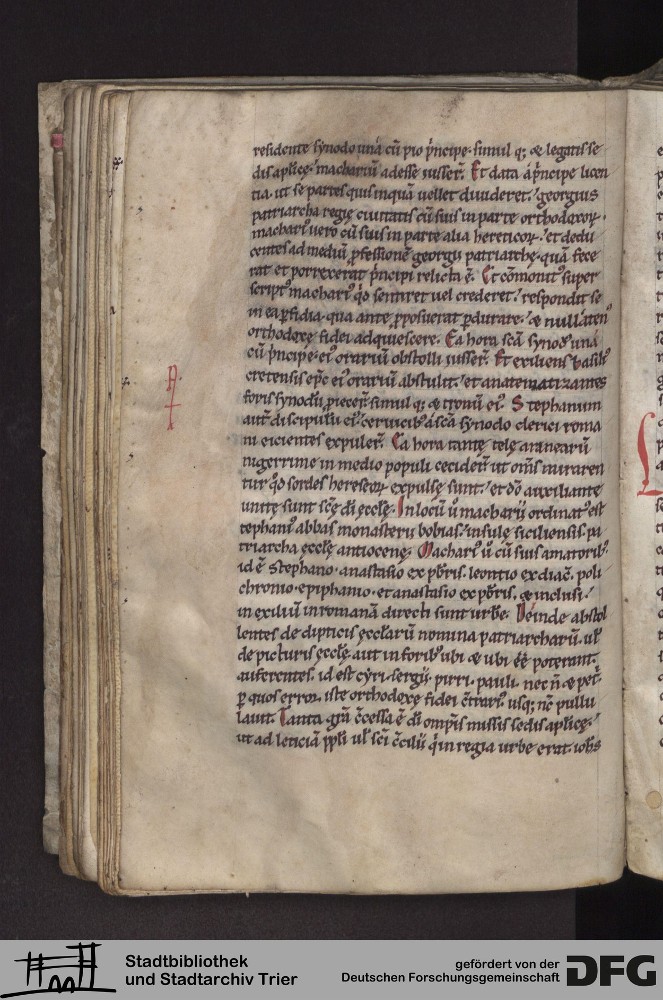 residente synodo unā cū pio p̄ncipe. simul q; & legatis se
dis aplicę. macharıū adesse iusser̄. Et data a p̄ncipe licen
tia. ut se partes quis in quā uellet diuideret. georgius
patriarcha regię ciuitatis cū suis in parte orthodoxoꝝ.
machari' uero cū suis in parte alia hereticoꝝ. et dedu
centes ad mediū p̄fessionē georgii patriarchę. quā fece
rat et porrexerat p̄ncipi relicta ē. Et cōmonit' super
script' machari' qđ sentiret uel crederet. respondit se
in ea p̄fidia. qua ante p̄posuerat p̄durare. & nullaten'
orthodoxę fidei adquiescere. Ea hora scā synod' unā
cū p̄ncipe. ei' orariū abstolli iusser̄. Et exiliens basili'
cretensis ep̄c ei' orariū abstulit. et anatematizantes
foris synodū piecer̄ simul q; & tronū ei'. Stephanum
aut̄ discipulū ei'. ceruicib' a scā synodo clerici roma
ni eicientes expuler̄. Ea hora tantę telę aranearū
nigerrimę in medio populi cecider̄ ut om̄s miraren
tur qđ sordes hereseoꝝ expulsę sunt. et dō auxiliante
unitę sunt scę dī ecclę. In locū ū macharii ordinat' est
tephani' abbas monasterii bobias. insulę siciliensis. pa
triarcha ecclę antiocenę. Machari' ū cū suis amatorib'.
id ē stephano. anastasio ex pbris. leontio ex diac̄. poli
chronio. epiphanio. et anastasio ex pbris. & inclusi.
in exiliū in romanā directi sunt urbē. Deinde abstol
lentes de dipticis ecclarū nomina patriarcharū. ul'
de picturis ecclę. aut in forib' ubi & ubi ēē poterant.
auferentes. id est cyri. sergii. pirri. pauli. nec ñ & pet̄.
p quos error. iste orthodoxę fidei c̄trari'. usq; nc̄ pullu
lauit. Tanta grā c̄cessa ē dī omp̄tis missis sedis aplicę.
ut ad leticiā ppli ul' scī c̄cilii q̄ in regia urbe erat. iohs
Stadtbibliothek
und Stadtarchiv Trier
gefördert von der
Deutschen Forschungsgemeinschaft
DFG